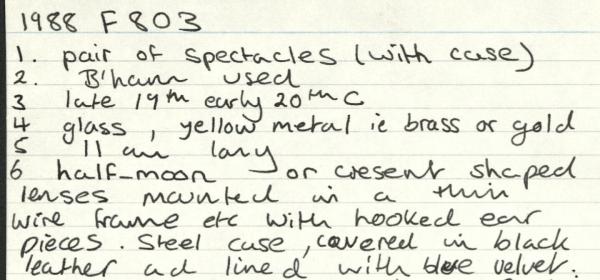 1988 F803
1. pair of spectacles (with case)
2. B'ham used
3 late 19th early 20th C
4 glass, yellow metal ie brass or gold
5 11 cm long
6 half-moon or cresent shaped
lenses mounted in a thin
wire frame etc with hooked ear
pieces. Steel case, covered in black
leather and lined with blue velvet.